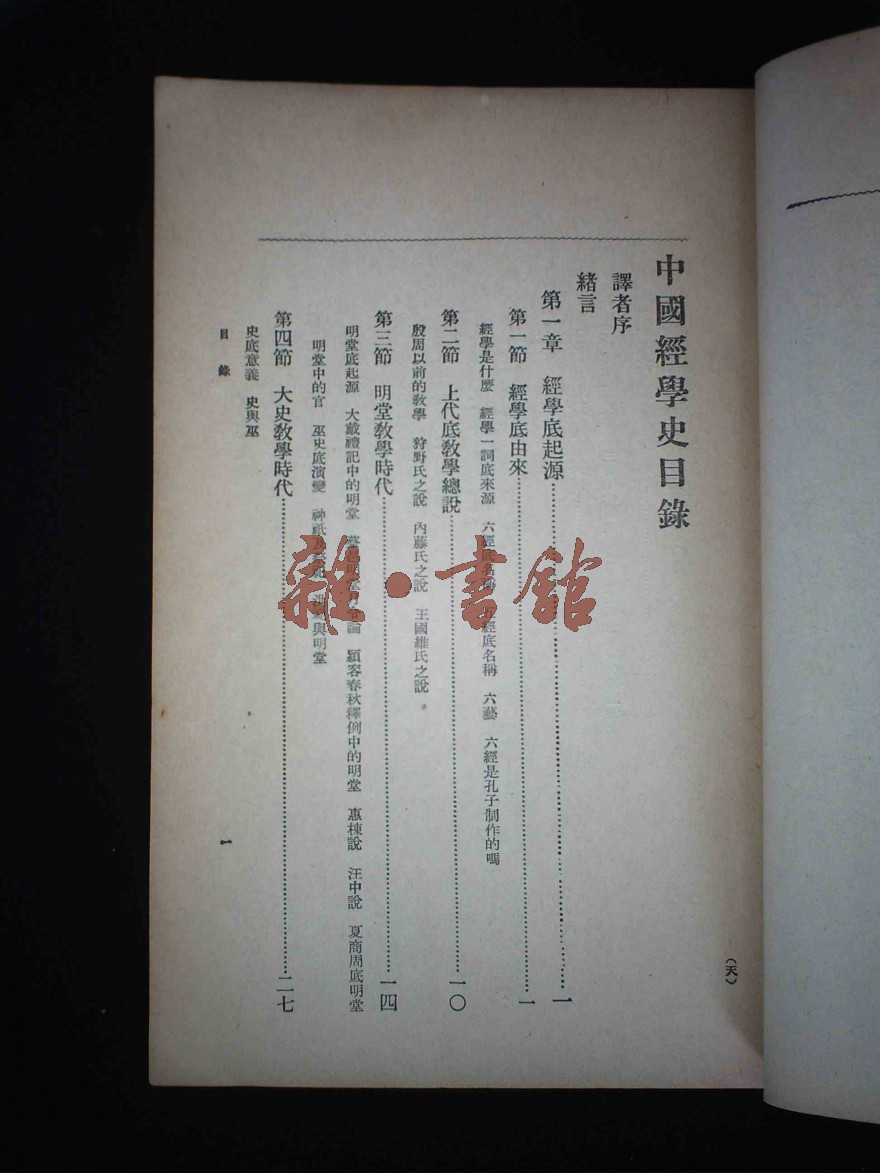 中國經學史目錄
譯者序
緒言
第一章　經學底起源……一
第一節　經學底由來……一
經學是什麼　經學一詞底來源　六經底名稱　經底名稱　六藝　六經是孔子制作的嗎
第二節　上代底敎學總說……一〇
殷周以前的敎學　狩野氏之說　內藤氏之說　王國維氏之說
第三節　明堂敎學時代……一四
明堂底起源　大戴禮記中的明堂　論　潁容春秋釋例中的明堂　惠棟說　汪中說　夏商周底明堂
明堂中的官　巫史底演變　神祇　與明堂
第四節　大史敎學時代……二七
史底意義　史與巫
目錄
一
（天）
雜·書館